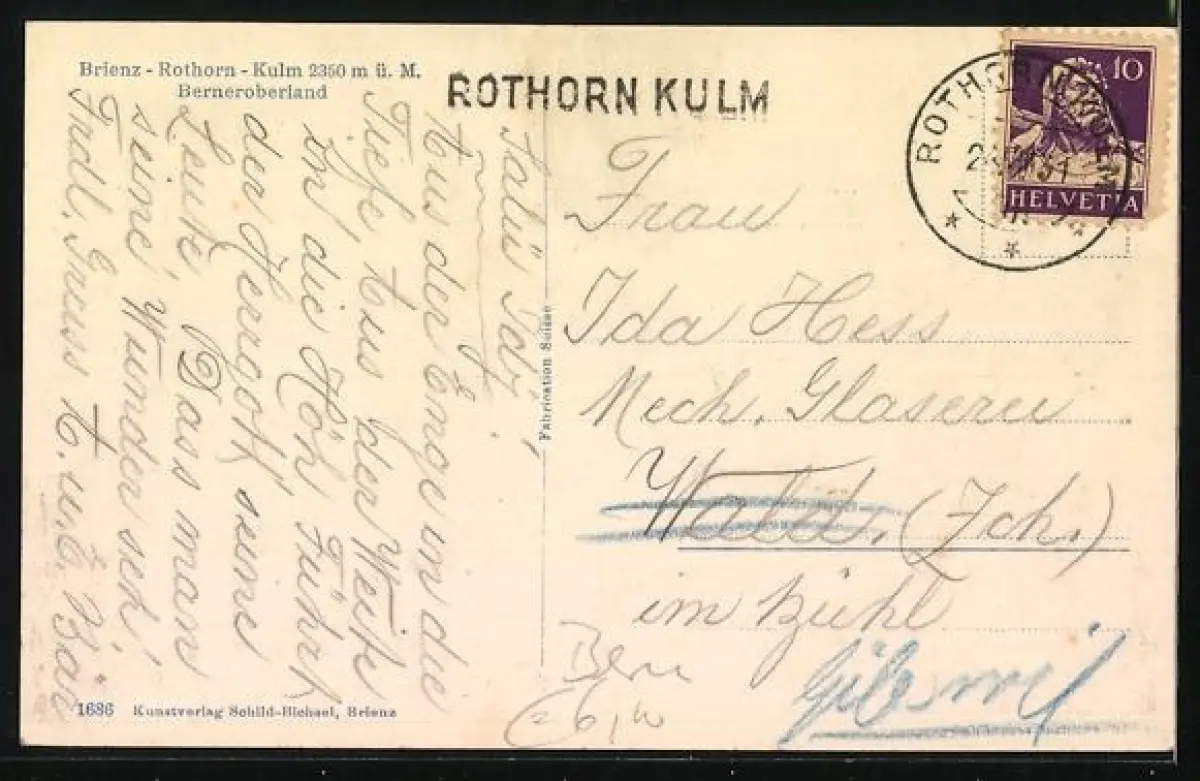 Brienz - Rothorn - Kulm 2350 m ü. M.
Berneroberland
ROTHORN KULM
ROTHORN KULM
10
HELVETIA
Salü Idy,
Aus der Enge in die
Tiefe, Aus der Weite
in die Höh, Führt
der Hergott seine
Leute, Dass man
seine Wunder seh'
Frdl. Gruss A. u. E. Bär
Fabrication Suisse
Frau
Ida Hess
Mech. Glaserei
Wald. (Zch.)
im Bühl
Bern
1686 Kunstverlag Schild-Bichsel, Brienz